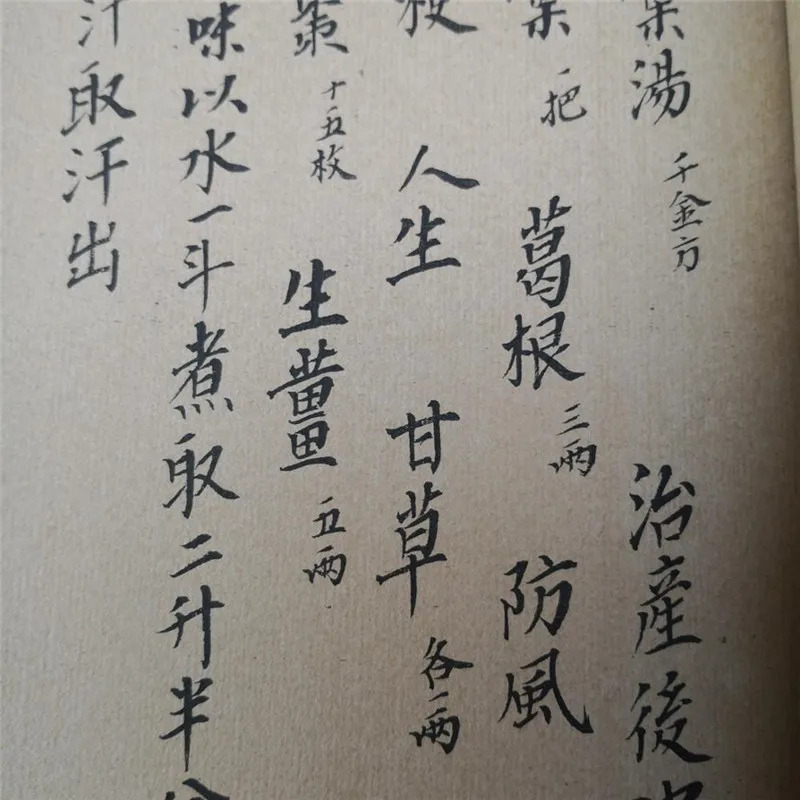 湯 千金方 治產後
一把 葛根 三兩 防風
人生 甘草 各一兩
棗 十五枚 生薑 五兩
味以水一斗煮取二升半分
汗取汗出